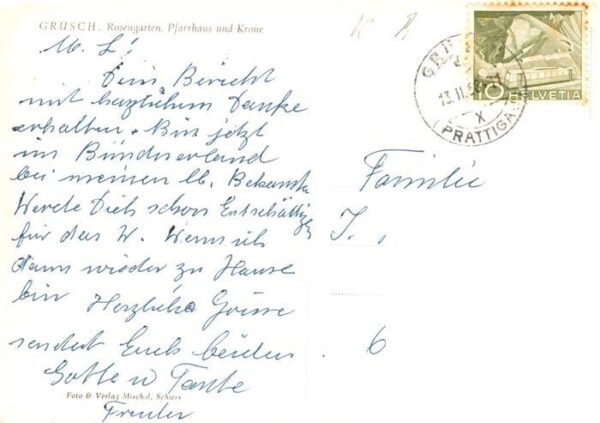 GRÜSCH. Rosengarten, Pfarrhaus und Krone
M. L!
Dein Bericht
mit herzlichem Danke
erhalten. Bin jetzt
im Bündnerland
bei meinen lb. Bekannte
Werde Dich schon Entschättigen
für das W. Wenn ich
dann wieder zu Hause
bin Herzliche Grüsse
sendet Euch beiden
Gotte u Tante
Foto & Verlag Mischol, Schiers
K R
13.II.
X
(PRÄTTIGAU)
10 HELVETIA
Familie
J.
6